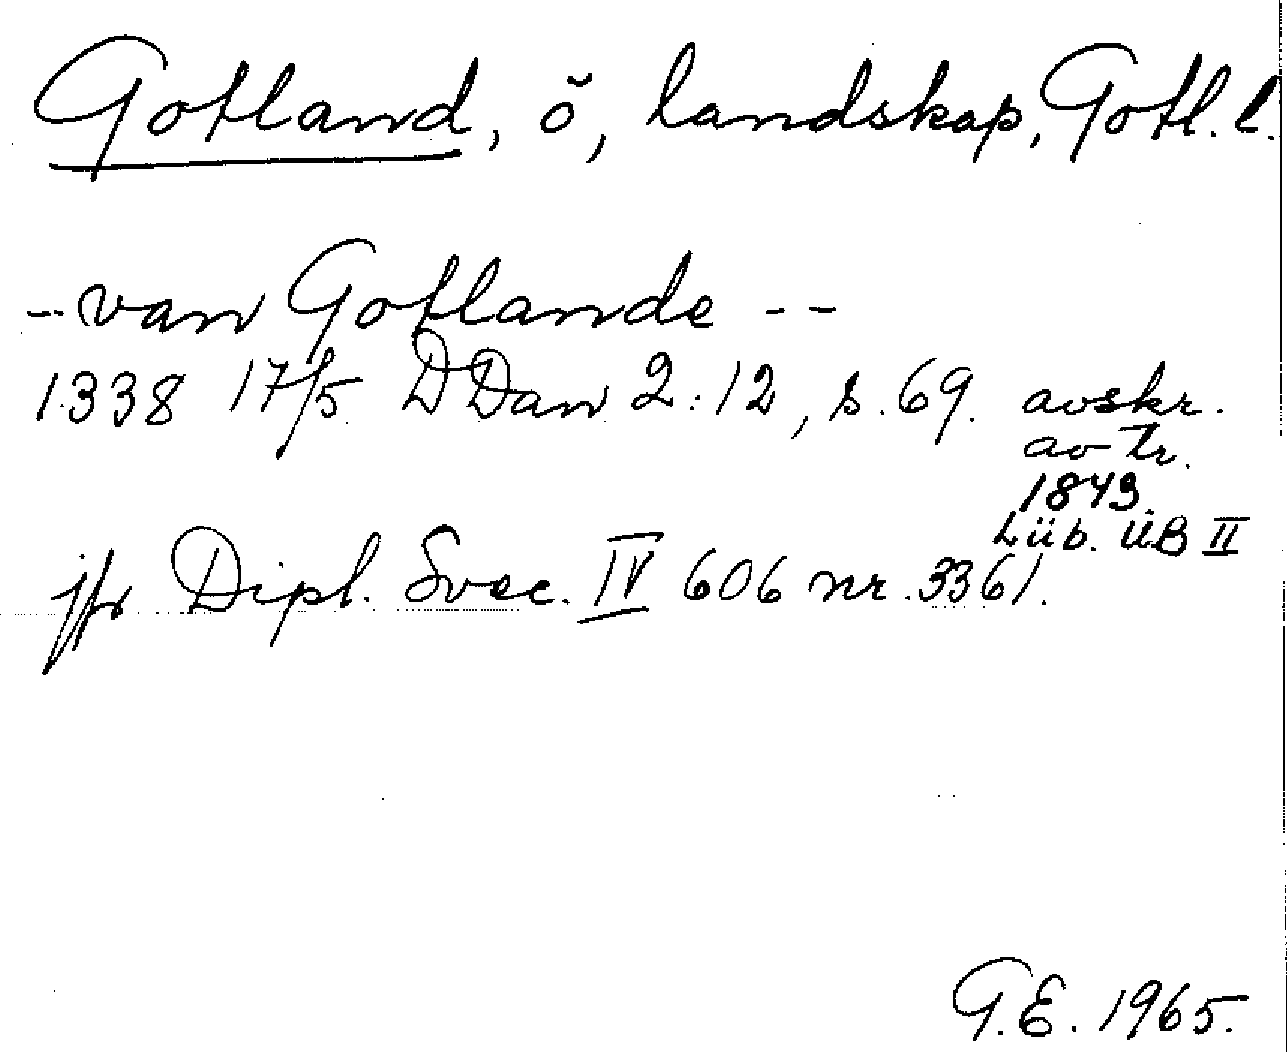 Gotland, ö, landskap, Gotl. l.
-- van Gotlande --
1338 17/5 DDan 2:12, s. 69. avskr.
av tr.
1843
Lüb. UB II
jfr Dipl. Svec. IV 606 nr. 3361.
G.E. 1965.